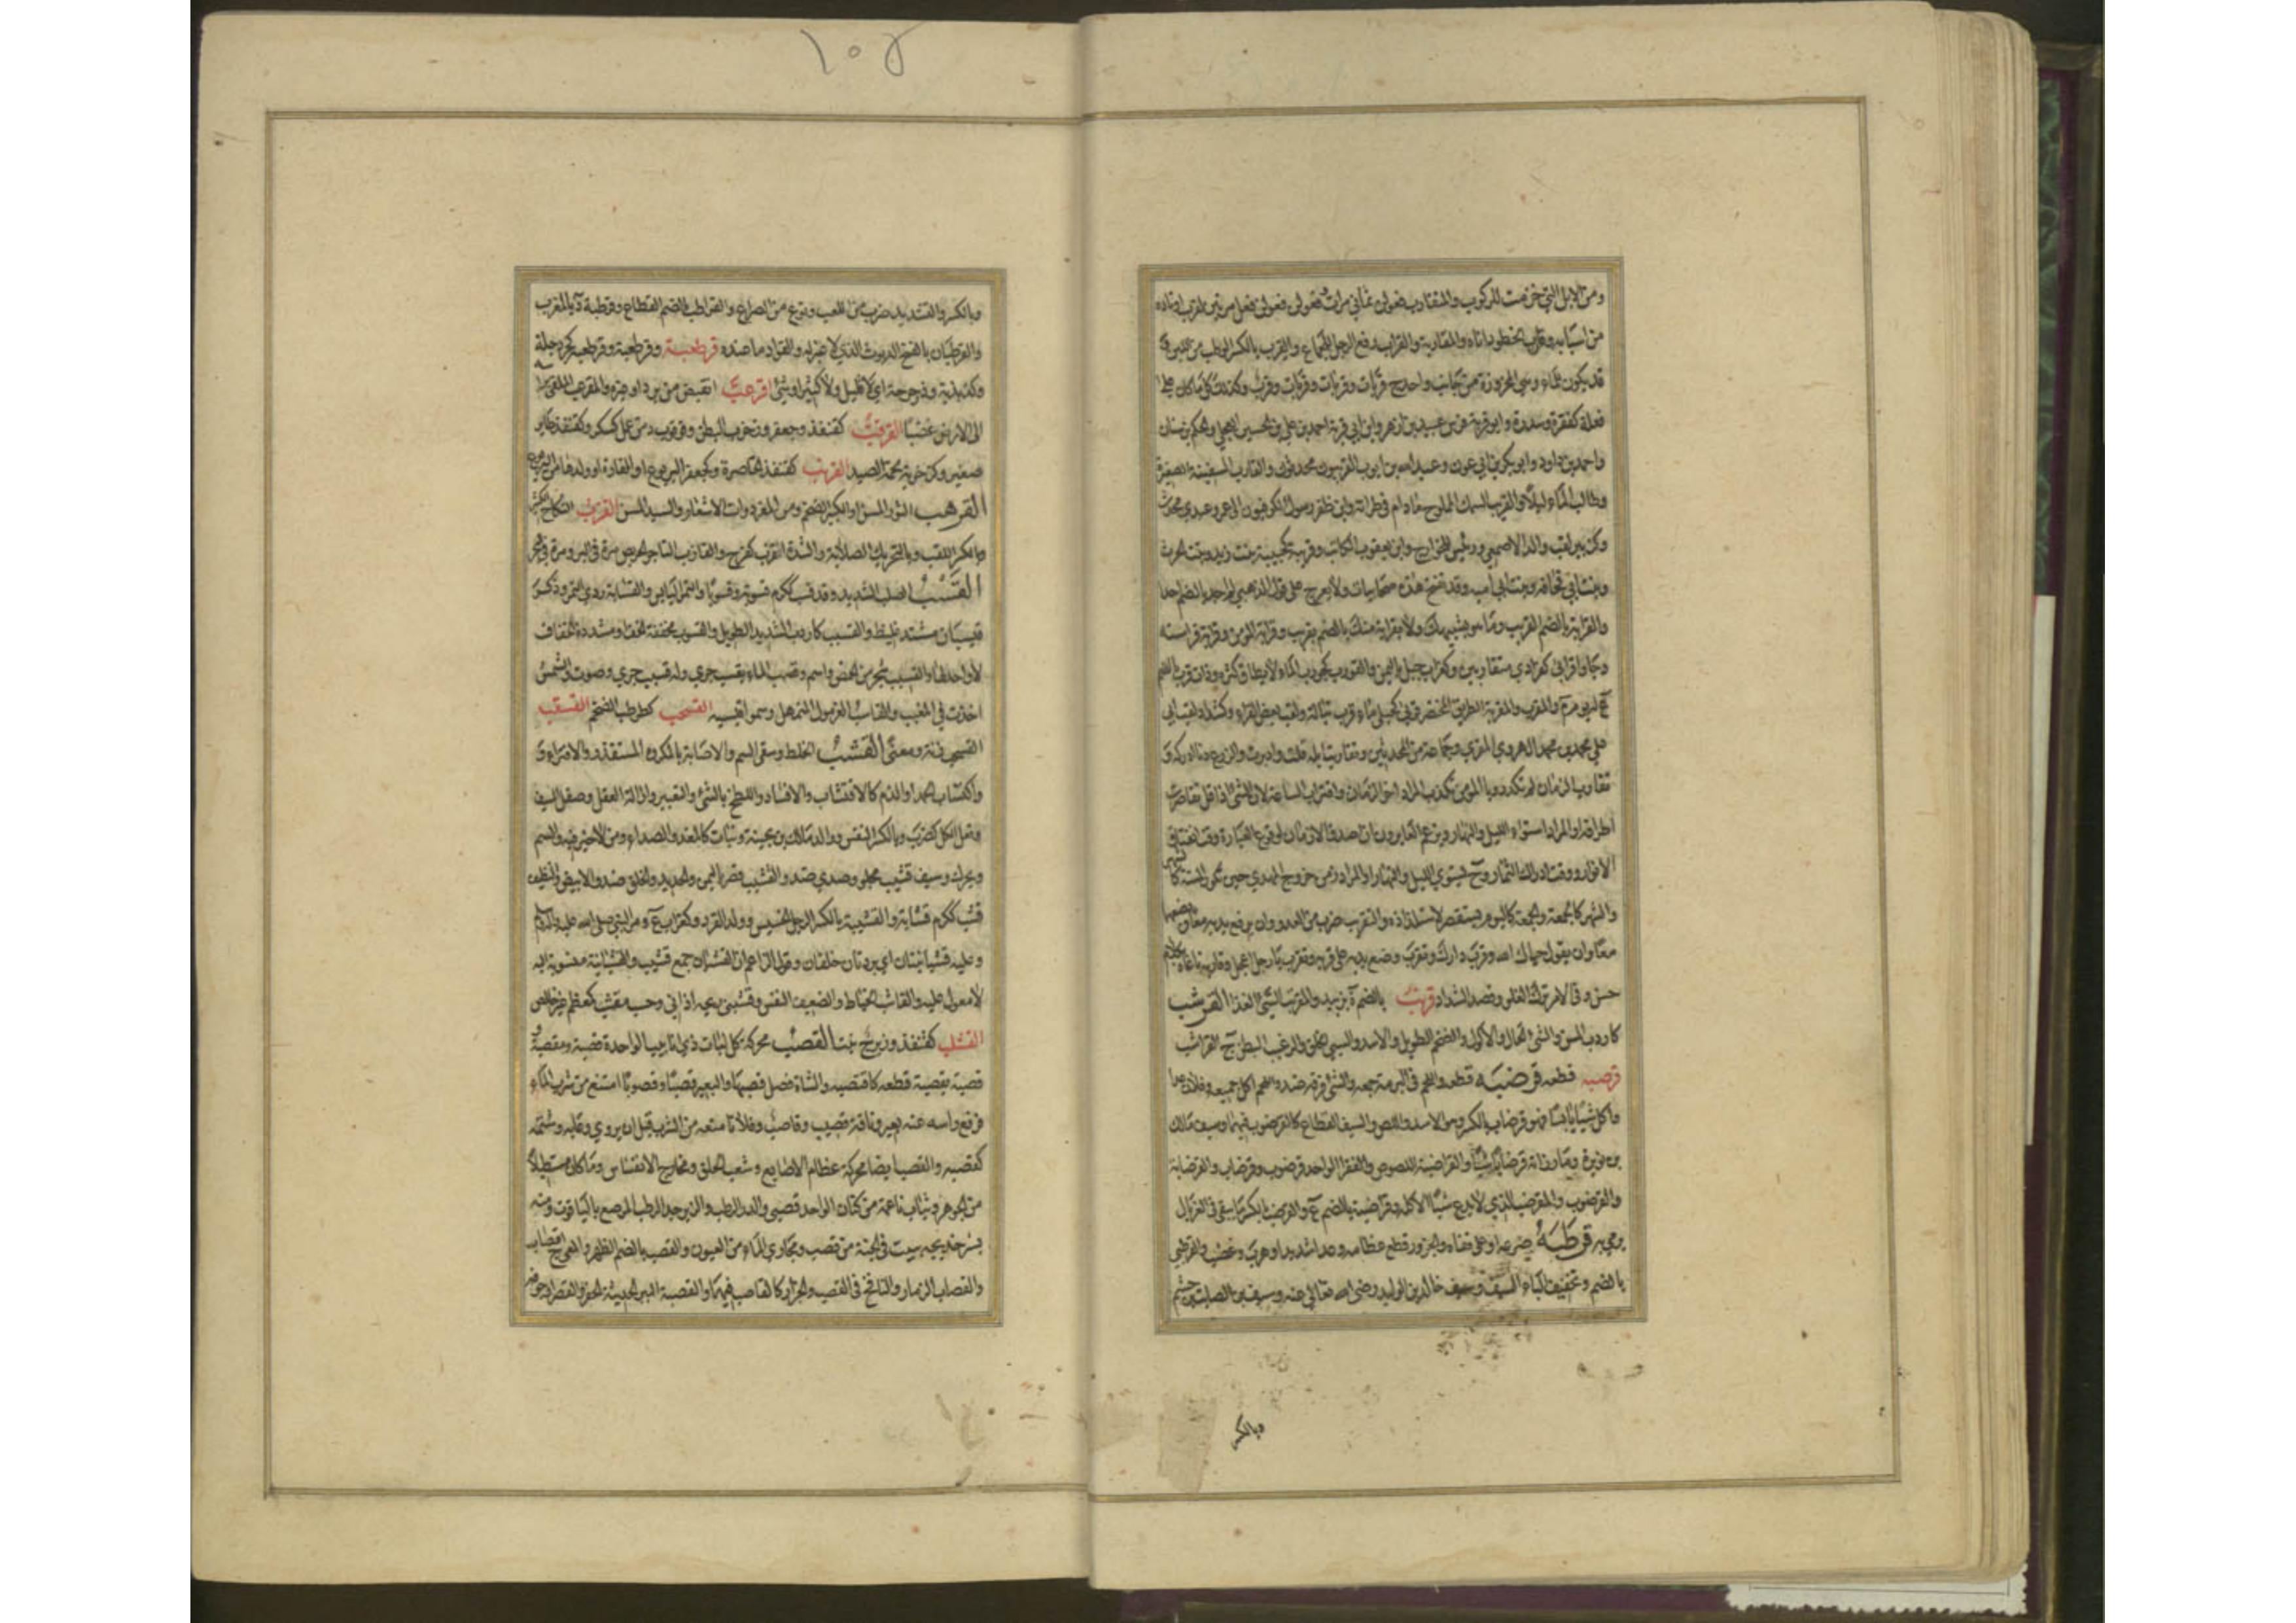 ١٠٤
ومن الابل التي خزمت للركوب والمتقارب فعولن ثماني مرات وفعولن فعولن فعل مرتين لقرب اوتاده
من اسبابه وقارب الخطو داناه والمقاربة والقراب رفع الرجل للجماع والقرب بالكسر الوطب من اللبن وقد
قد يكون للماء وهي المخروزة من جانب واحد ج قربات وقربات وقربات وقرب وكذلك كل ما كان على
فعلة كفقرة وسدرة وابو قربة فرس عبيد بن ازهر وابن ابي قربة احمد بن علي بن الحسين العجلي والحكم بن سنان
واحمد بن داود وابو بكر بن ابي عون وعبد الله بن ايوب القربيون محدثون والقارب السفينة الصغيرة
وطالب الماء ليلا والقريب السمك المملوح ما دام في طرائته وابن ظفر رسول الكوفيين الى عمر وعبدي محدث
وكزبير لقب والد الاصمعي ورئيس للخوارج وابن يعقوب الكاتب وقريبة كحبيبة بنت زيد وبنت الحرث
وبنت ابي قحافة وبنت ابي امية وقد تفتح هذه صحابيات ولا يعرج على قول الذهبي لم اجد بالضم احدا
والقرابة بالضم القريب وما هو بشبيهك ولا بقرابة منك بالضم بقريب وقرابة المؤمن وقرابته فراسته
وجاؤا قرابى كفرادى متقاربين وكغراب جبل باليمن والقورب كجورب الماء لا يطاق كثرة وذات قرب بالضم
ع له يوم م والمقرب والمقربة الطريق المختصر وقربى كحبلى ماء قرب تبالة ولقب بعض القراء وكشداد لقب ابي
علي محمد بن محمد الهروي المقرئ وجماعة من المحدثين وتقاربت ابله قلت وادبرت والزرع دنا ادراكه و
تقارب الزمان لم تكد رؤيا المؤمن تكذب المراد اخر الزمان واقتراب الساعة لان الشئ اذا قل تقاصرت
اطرافه او المراد استواء الليل والنهار ويزعم العابرون ان اصدق الازمان لوقوع العبارة وقت انفتاق
الانوار ووقت ادراك الثمار وح يستوي الليل والنهار او المراد زمن خروج المهدي حين تكون السنة كالشهر
والشهر كالجمعة والجمعة كاليوم يستقصر لاستلذاذه والتقريب ضرب من العدو وان يرفع يديه معا ويضعهما
معا وان يقول حياك الله وقرب دارك وتقرب وضع يديه على قربه وتقرب يا رجل اعجل وقاربه ناغاه بكلام
حسن وفي الامر ترك الغلو وقصد السداد قرتب بالضم ة بزبيد والمقرتب السيئ الغذا القرشب
كاردب المسن والسئ الحال والاكول والضخم الطويل والاسد والسيئ الخلق والرغيب البطن ج القراشب
قرصبه قطعه قرضبه قطعه واللحم في البرمة جمعه والشئ فرقه ضد واللحم اكل جميعه وفلان عدا
واكل شيئا يابسا فهو قرضاب بالكسر وهو الاسد واللص والسيف القطاع كالقرضوب فيهما وسيف مالك
بن نويرة وما رزأته قرضابا شيئا والقراضبة اللصوص والفقرا الواحد قرضوب وقرضاب والقرضابة
والقرضوب والمقرضب الذي لا يدع شيئا الا اكله وقراضبة بالضم ع والقرضب بالكسر ما يبقى في الغربال
يرمى به قرطبه صرعه او على قفاه والجزور قطع عظامه وعدا شديدا وهرب وغضب والقرطبي
بالضم وتخفيف الباء السيف وسيف خالد بن الوليد رضى الله تعالى عنه وسيف بن الصامت بن جشم
وبالكسر
وبالكسر والتشديد ضرب من اللعب ونوع من الصراع والقراطب بالضم القطاع وقرطبة د بالمغرب
والقرطبان بالفتح الديوث الذي لا غيرة له والقواد ما عنده قرطعبة وقرطعبة وقرطعبة كجردحلة
وكذبذبة وذرحرحة اي لا قليل ولا كثير او شئ اقرعب انقبض من برد او غيره والمقرعب الملقي راسه
الى الارض غضبا القرقب كقنفذ وجعفر وزخرب البطن وقرقوب د من عمل كسكر وكقنفذ طاير
صغير وكزخربة لحمة الصيد القرنب كقنفذ الخاصرة وكجعفر اليربوع او الفارة او ولدها من اليربوع
القرهب الثور المسن او الكبير الضخم ومن المعز ذوات الاشعار والسيد المسن القزب النكاح الكثير
وبالكسر اللقب وبالتحريك الصلابة والشدة قزب كفرح والقازب التاجر الحريص مرة في البر ومرة في البحر
القسب الصلب الشديد وقد قسب ككرم قسوبة وقسوبا والتمر اليابس والقسابة ردي التمر وذكر
قيسبان مشتد غليظ والقسيب كاردب الشديد الطويل والقسوب مخففة الخفا ومشددة الخفاف
لا واحد لها والقيسب شجر من الحمض واسم وقسب الماء يقسب جرى وله قسيب جري وصوت والشمس
اخذت في المغيب والقاسب الغرمول المتمهل وسموا قيسبه القسحب كطرطب الضخم القسقب
القسحب زنة ومعنى القشب الخلط وسقى السم والاصابة بالمكروه المستقذر والافتراء و
واكتساب الحمد او الذم كالاقتشاب والافساد واللطخ بالشئ والتعيير وازالة العقل وصقل السيف
وفعل الكل كضرب وبالكسر النفس ووالد مالك بن بحينة ونبات كالمغد والصدا ومن لا خير فيه والسم
ويحرك وسيف قشيب مجلو وصدئ ضد والقشيب قصر باليمن والجديد والخلق ضد والابيض والنظيف
قشب ككرم قشابة والقشبة بالكسر الرجل الخسيس وولد القرد وكغراب ع ومر النبي صلى الله عليه وسلم
وعليه قشبانيتان اي بردتان خلقان وقول الزاعم ان القشبان جمع قشيب والقشبانية منسوبة اليه
لا معول عليه والقاشب الخياط والضعيف النفس وقشبني ريحه اذاني وحسب مقشب كمعظم غير خالص
القشلب كقنفذ وزبرج نبت القصب محركة كل نبات ذي انابيب الواحدة قصبة وقصباة و
قصبه يقصبه قطعه كاقتصبه والشاة فصل قصبها والبعير قصبا وقصوبا امتنع من شرب الماء
فرفع راسه عنه بعير وناقة قصيب وقاصب وفلانا منعه من الشرب قبل ان يروى وعابه وشتمه
كقصبه والقصب ايضا محركة عظام الاصابع وشعب الحلق ومخارج الانفاس وما كان مستطيلا
من الجوهر وثياب ناعمة من كتان الواحد قصبي والدر الرطب والزبرجد الرطب المرصع بالياقوت ومنه
بشر خديجة ببيت في الجنة من قصب ومجاري الماء من العيون والقصب بالضم الظهر والمعى ج اقصاب
والقصاب الزمار والنافخ في القصب والجزار كالقاصب فيهما والقصبة البئر الحديثة الحفر والقصر او جوفه